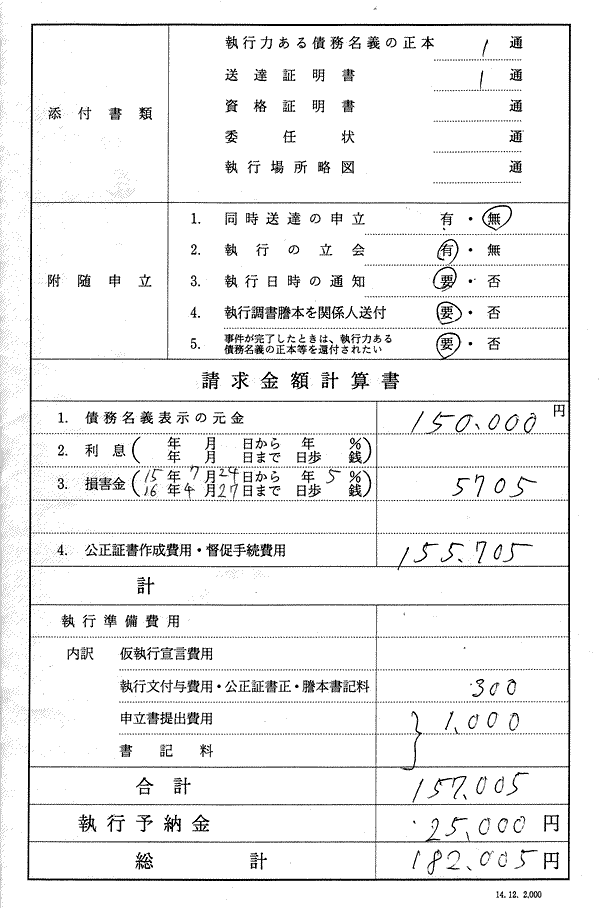 添付書類
執行力ある債務名義の正本 1 通
送達証明書 1 通
資格証明書 通
委任状 通
執行場所略図 通
附随申立
1. 同時送達の申立 有・無
2. 執行の立会 有・無
3. 執行日時の通知 要・否
4. 執行調書謄本を関係人送付 要・否
5. 事件が完了したときは、執行力ある
債務名義の正本等を還付されたい 要・否
請求金額計算書
1. 債務名義表示の元金 150.000円
2. 利息( 年 月 日から 年 %
年 月 日まで 日歩 銭)
3. 損害金(15年7月24日から 年5%
16年4月27日まで 日歩 銭) 5705
4. 公正証書作成費用・督促手続費用 155.705
計
執行準備費用
内訳 仮執行宣言費用
執行文付与費用・公正証書正・謄本書記料 300
申立書提出費用 1,000
書記料
合計 157.005
執行予納金 25,000円
総計 182.005円
14. 12. 2,000